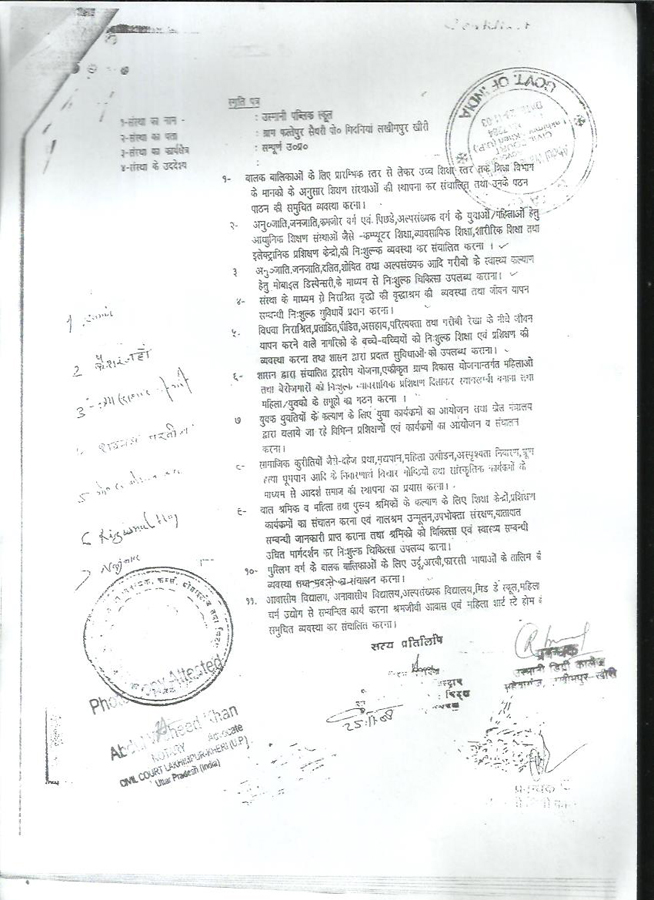 स्मृति पत्र
१-संस्था का नाम - : उस्मानी पब्लिक स्कूल
२-संस्था का पता : ग्राम फत्तेपुर सैधरी पो० मिदनियां लखीमपुर खीरी
३-संस्था का कार्यक्षेत्र : सम्पूर्ण उ०प्र०
४-संस्था के उददेश्य :
१- बालक बालिकाओं के लिए प्रारम्भिक स्तर से लेकर उच्च शिक्षा स्तर तक शिक्षा विभाग
के मानको के अनुसार शिक्षण संस्थाओं की स्थापना कर संचालित तथा उनके पठन
पाठन की समुचित व्यवस्था करना।
२- अनु०जाति,जनजाति,कमजोर वर्ग एवं पिछडे,अल्पसंख्यक वर्ग के युवाओं/महिलाओं हेतु
आधुनिक शिक्षण संस्थाओं जैसे -कम्प्यूटर शिक्षा,व्यावसायिक शिक्षा,शारीरिक शिक्षा तथा
इलेक्ट्रानिक प्रशिक्षण केन्द्रो,की निःशुल्क व्यवस्था कर संचालित करना ।
३ अनु०जाति,जनजाति,दलित,शोषित तथा अल्पसंख्यक आदि गरीबो के स्वास्थ्य कल्याण
हेतु मोबाइल डिस्पेन्सरी,के माध्यम से निःशुल्क चिकित्सा उपलब्ध कराना।
४- संस्था के माध्यम से निराश्रित वृद्धों की वृद्धाश्रम की व्यवस्था तथा जीवन यापन
सम्बन्धी निःशुल्क सुविधायें प्रदान करना।
५. विधवा निराश्रित,प्रताडित,पीडित,असहाय,परित्यक्ता तथा गरीबी रेखा के नीचे जीवन
यापन करने वाले नागरिकों के बच्चे-बच्चियों को निःशुल्क शिक्षा एवं प्रशिक्षण की
व्यवस्था करना तथा शासन द्वारा प्रदत्त सुविधाओं को उपलब्ध कराना।
६- शासन द्वारा संचालित ट्राइसेम योजना,एकीकृत ग्राम्य विकास योजनान्तर्गत महिलाओं
तथा बेरोजगारों को निःशुल्क व्यावसायिक प्रशिक्षण दिलाकर स्वावलम्बी बनाना तथा
महिला/युवको के समूहों का गठन करना ।
७ युवक युवतियों के कल्याण के लिए युवा कार्यक्रमों का आयोजन तथा खेल मंत्रालय
द्वारा चलाये जा रहे विभिन्न प्रशिक्षणों एवं कार्यक्रमों का आयोजन व संचालन
करना।
८- सामाजिक कुरीतियों जैसे-दहेज प्रथा,मद्यपान,महिला उत्पीडन,अस्पृश्यता निवारण,भ्रूण
हत्या धूम्रपान आदि के निवारणार्थ विचार गोष्ठियों तथा सांस्कृतिक कार्यक्रमों के
माध्यम से आदर्श समाज की स्थापना का प्रयास करना।
९- बाल श्रमिक व महिला तथा पुरूष श्रमिकों के कल्याण के लिए शिक्षा केन्द्रो,प्रशिक्षण
कार्यक्रमों का संचालन करना एवं बालश्रम उन्मूलन,उपभोक्ता संरक्षण,यातायात
सम्बन्धी जानकारी प्राप्त कराना तथा श्रमिकों को चिकित्सा एवं स्वास्थ्य सम्बन्धी
उचित मार्गदर्शन कर निःशुल्क चिकित्सा उपलब्ध करना।
१०- मुस्लिम वर्ग के बालक बालिकाओं के लिए उर्दू,अरबी,फारसी भाषाओं के तालिम
व्यवस्था तथा संचालन करना।
११. आवासीय विद्यालय, अनावासीय विद्यालय,अल्पसंख्यक विद्यालय,मिड डे स्कूल,महिला
चर्म उद्योग से सम्बन्धित कार्य करना श्रमजीवी आवास एवं महिला शार्ट स्टे होम
समुचित व्यवस्था कर संचालित करना।
सत्य प्रतिलिपि
GOVT. OF INDIA
25.11.08
प्रबन्धक
उस्मानी डिग्री कालेज
लखीमपुर-खीरी
Photo Copy Attested
Abdul Waheed Khan
NOTARY Advocate
CIVIL COURT LAKHIMPUR-KHERI (U.P.)
Uttar Pradesh (India)